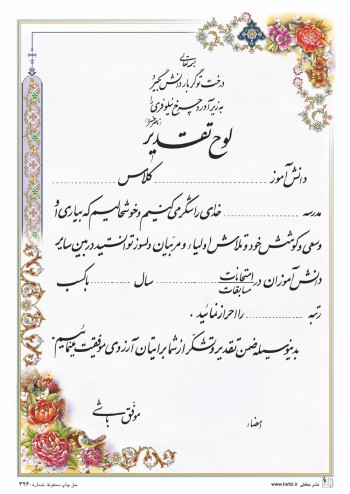 بسمه تعالی
درخت تو گر بار دانش بگیرد
به زیر آوری چرخ نیلوفری را
لوح تقدیر
دانش آموز ............ کلاس ............
مدرسه ............ خدای را شکر می کنیم و خوشحالیم که به یاری او
و سعی و کوشش خود و تلاش اولیاء و مربیان دلسوز توانستید در بین سایر
دانش آموزان در امتحانات
مسابقات سال ............ با کسب
رتبه ............ را احراز نمائید .
بدینوسیله ضمن تقدیر و تشکر از شما برایتان آرزوی موفقیت مینمائیم.
موفق باشی
امضاء
حق چاپ محفوظ، شماره: ۳۲۶
نشر حفظی www.hefzi.ir